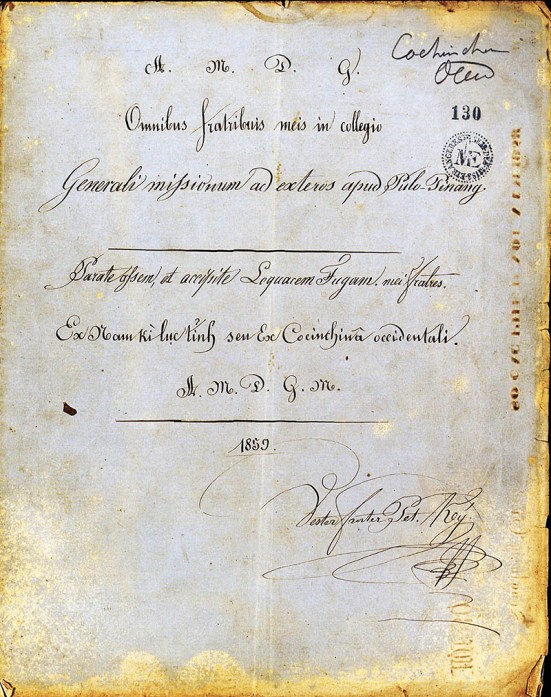 Cochinchine
Occid
130
ME
A. M. D. G.
Omnibus fratribuis meis in collegio
Generali missionum ad exteros apud Pulo-Pinang.
Parate assem, et accipite Loquacem Fugam. mei fratres.
Ex Nam Kì lục tỉnh seu Ex Cocinchinâ occidentali.
A. M. D. G. M.
1859.
Vester frater Pet. Key.